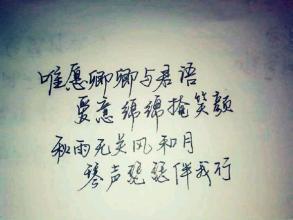 唯愿卿卿与君语
爱意绵绵掩笑颜
秋雨无关风和月
琴声瑟瑟伴我行